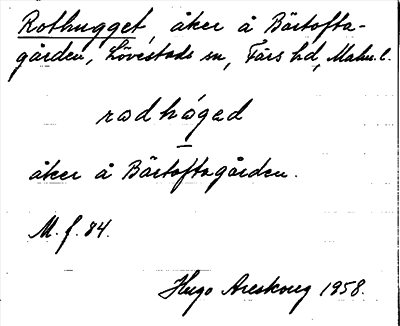 Rothugget, åker å Bärtofta-
gården, Lövestads sn, Färs hd, Malm. l.
rodhǿged
åker å Bärtoftagården.
M. f. 84.
Hugo Areskoug 1958.